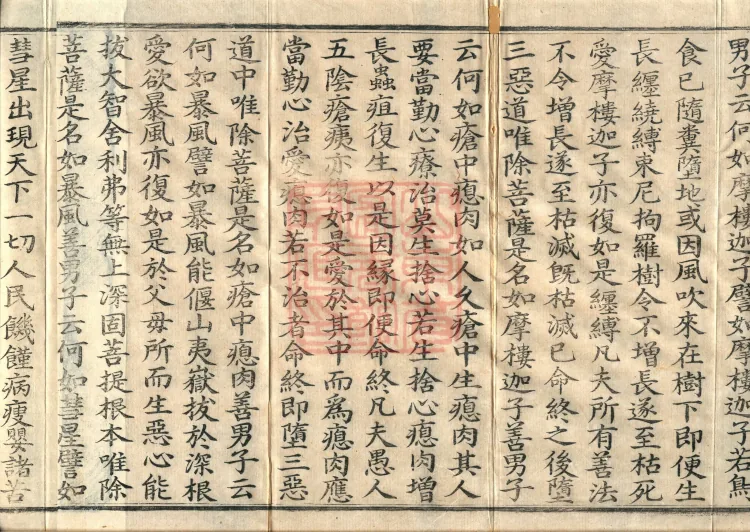 男子云何如摩樓迦子譬如摩樓迦子若鳥
食已隨糞墮地或因風吹來在樹下即便生
長纏繞縛束尼拘羅樹令不增長遂至枯死
愛摩樓迦子亦復如是纏縛凡夫所有善法
不令增長遂至枯滅既枯滅已命終之後墮
三惡道唯除菩薩是名如摩樓迦子善男子
云何如瘡中瘜肉如人久瘡中生瘜肉其人
要當勤心療治莫生捨心若生捨心瘜肉增
長蟲疽復生以是因緣即便命終凡夫愚人
五陰瘡痍亦復如是愛於其中而為瘜肉應
當勤心治愛瘜肉若不治者命終即墮三惡
道中唯除菩薩是名如瘡中瘜肉善男子云
何如暴風譬如暴風能偃山夷嶽拔於深根
愛欲暴風亦復如是於父母所而生惡心能
拔大智舍利弗等無上深固菩提根本唯除
菩薩是名如暴風善男子云何如彗星譬如
彗星出現天下一切人民饑饉病瘦嬰諸苦